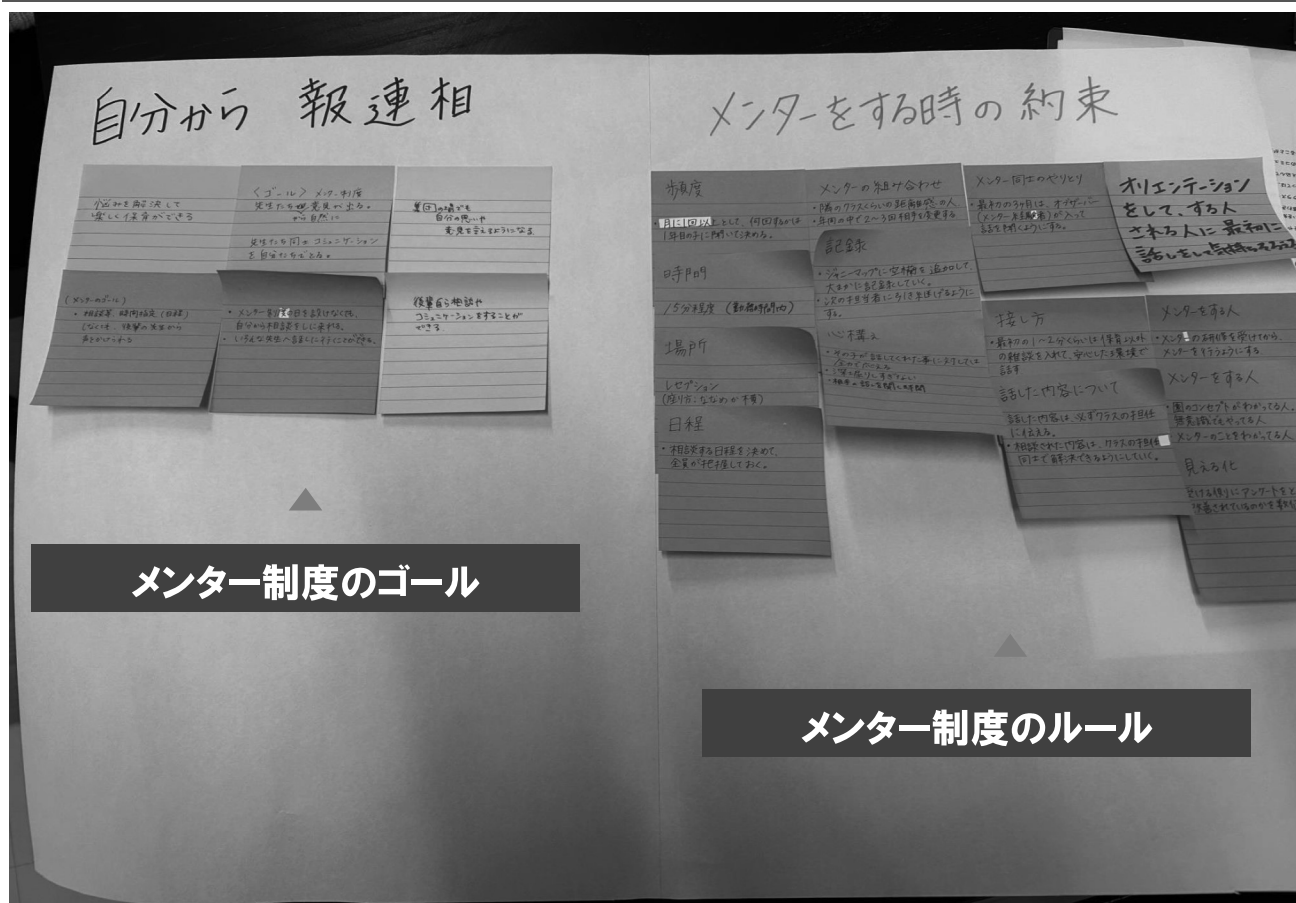 自分から 報連相
悩みを解決して
楽しく保育ができる
〈ゴール〉メンター制度
先生たち 意見が出る。
が自然に
先生たち同士コミュニケーション
を自分たちでとる。
集団の場でも
自分の思いや
意見を言えるようになる
(メンターのゴール)
・相談等 時間指定(日程)
しなくても、後輩の先生から
声をかけられる
・メンターを 日を設けなくても、
自分から相談をしに来れる。
・いろんな先生へ話しに行くことができる。
後輩自ら相談や
コミュニケーションをすることが
できる
メンター制度のゴール
メンターをする時の約束
頻度
・月に1回以上として、何回するかは
1年目の子に聞いて決める。
時間
15分程度(勤務時間内)
場所
レセプション
(座り方:ななめが横)
日程
・相談する日程を決めて、
全員が把握しておく。
メンターの組み合わせ
・隣のクラスくらいの距離感の人
・年間の中で2〜3回相手を変更する
記録
・ジャーニーマップに空欄を追加して、
大まかに記録していく。
・次の担当者に引き継げるように
する。
心構え
・その子が話してくれた事に対しては
・深堀りしすぎない
・相手の話を聞く時間
メンター同士のやりとり
・最初の3か月は、オブザーバー
(メンター経験者)が入って
話を聞くようにする。
オリエンテーション
をして、する人
される人に最初に
話しをして
接し方
・最初の1〜2分くらいは保育以外
の雑談を入れて、安心した環境で
話す
話した内容について
・話した内容は、必ずクラスの担任
に伝える。
・相談された内容は、クラスの担任
同士で解決できるようにしていく。
メンターをする人
・メンターの研修を受けてから、
メンターを行うようにする。
メンターをする人
・園のコンセプトがわかってる人。
無意識でもやってる人
メンターのことをわかってる人。
見える化
アンケートをと
改善されているのかを
メンター制度のルール